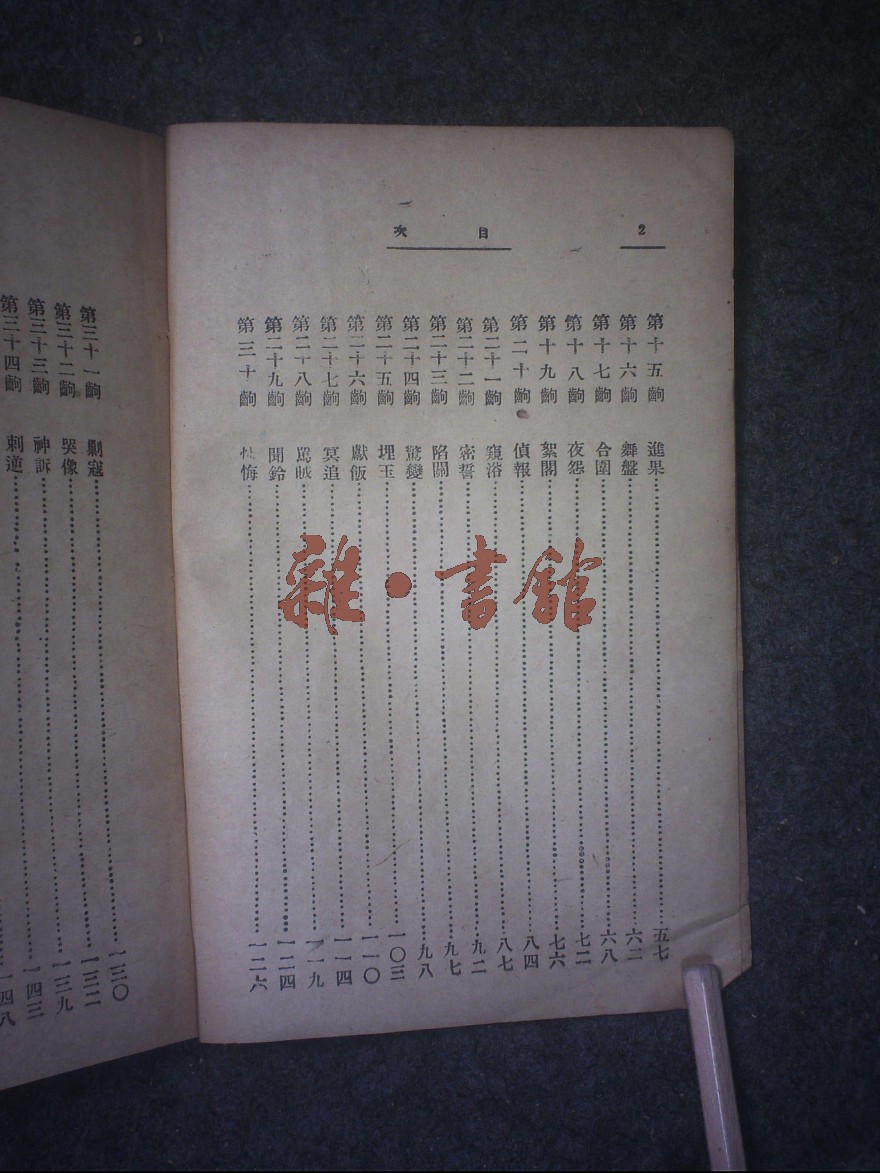 2
目次
第十五齣 進果……五七
第十六齣 舞盤……六二
第十七齣 合圍……六八
第十八齣 夜怨……七二
第十九齣 絮閣……七六
第二十齣 偵報……八四
第二十一齣 窺浴……八七
第二十二齣 密誓……九二
第二十三齣 陷關……九七
第二十四齣 驚變……九八
第二十五齣 埋玉……一〇三
第二十六齣 獻飯……一一〇
第二十七齣 冥追……一一四
第二十八齣 罵賊……一一九
第二十九齣 聞鈴……一二四
第三十齣 情悔……一二六
第三十一齣 剿寇……一三〇
第三十二齣 哭像……一三二
第三十三齣 神訴……一三九
第三十四齣 刺逆……一四三
一四八
雜·書館